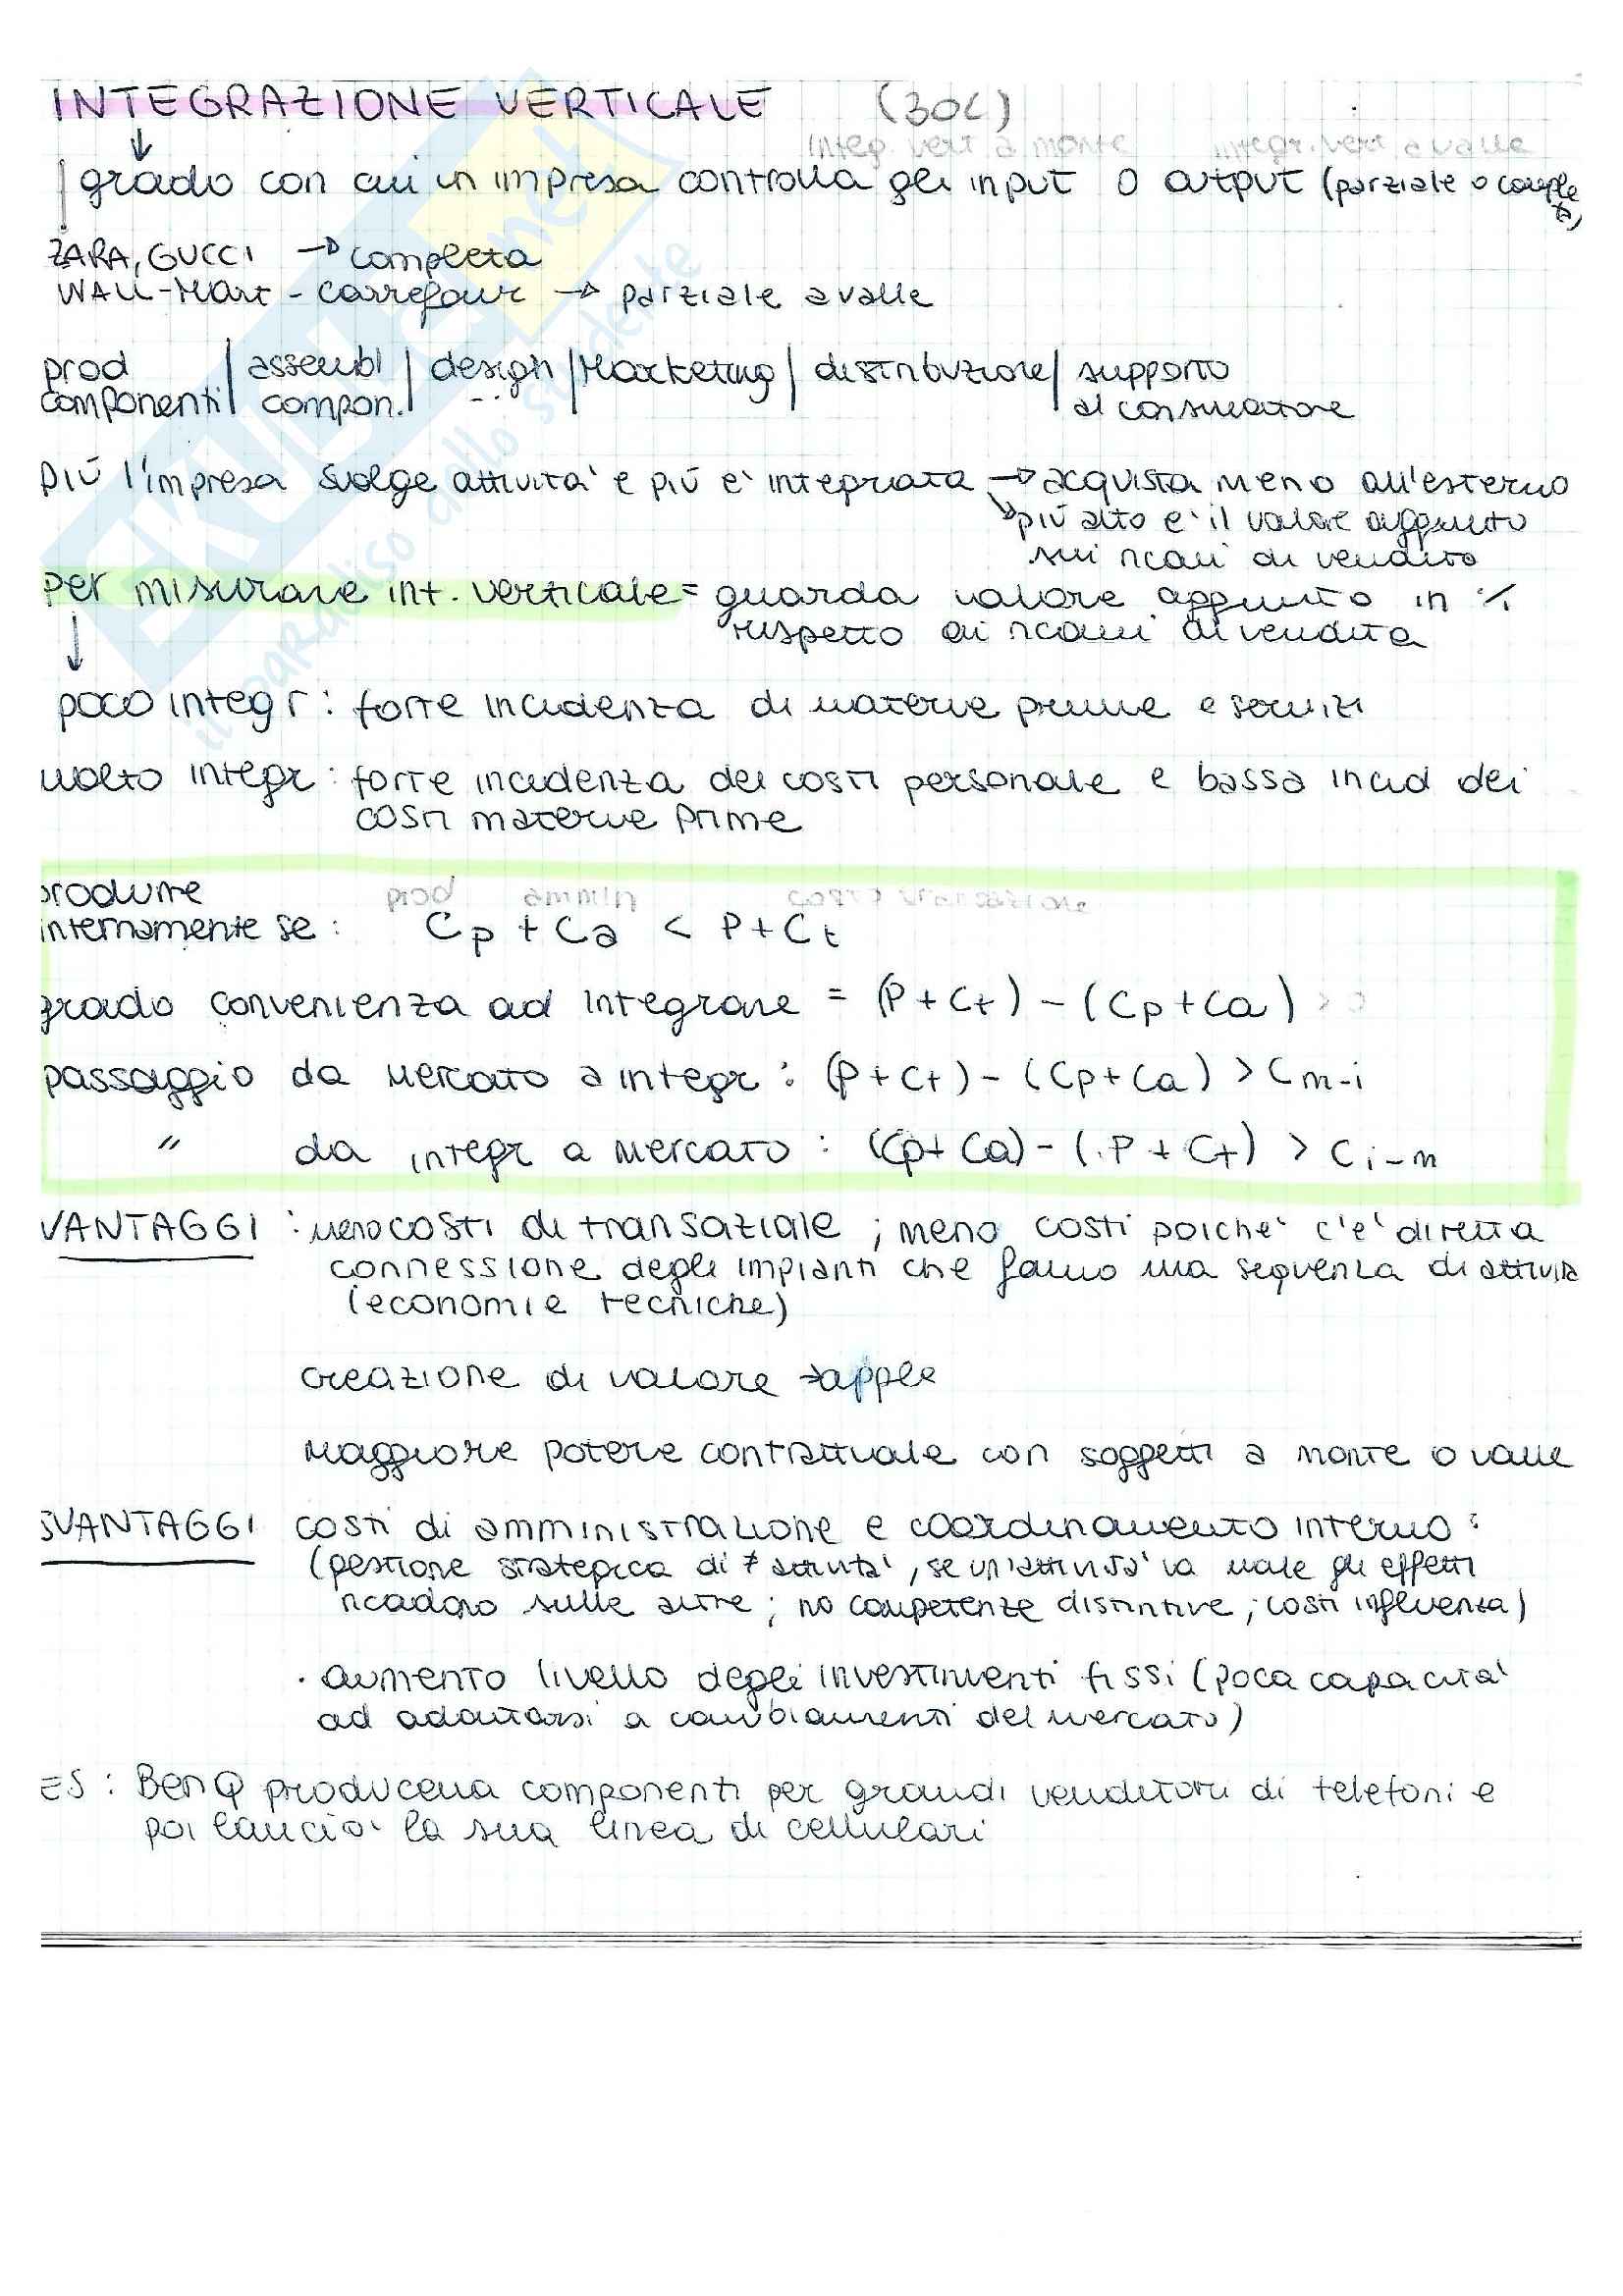 INTEGRAZIONE VERTICALE (30C)
integ. vert a monte integr. vert a valle
grado con cui un impresa controlla gli input o output (parziale o completa)
ZARA, GUCCI → completa
WALL-MART - Carrefour → parziale a valle
prod componenti | assembl compon. | design | Marketing | distribuzione | supporto al consumatore
più l'impresa svolge attività e più è integrata → acquista meno all'esterno
più alto è il valore aggiunto
sui ricavi di vendita
per misurare int. verticale = guarda valore aggiunto in %
rispetto ai ricavi di vendita
poco integr: forte incidenza di materie prime e servizi
molto integr: forte incidenza dei costi personale e bassa incid dei
costi materie prime
produrre prod ammin costo transazione
internamente se: Cp + Ca < P + Ct
grado convenienza ad integrare = (P + Ct) - (Cp + Ca) > 0
passaggio da mercato a integr: (P + Ct) - (Cp + Ca) > C m-i
" da integr a mercato: (Cp + Ca) - (P + Ct) > C i-m
VANTAGGI: meno costi di transaziale; meno costi poiché c'è diretta
connessione degli impianti che fanno una sequenza di attività
(economie tecniche)
creazione di valore → apple
maggiore potere contrattuale con soggetti a monte o valle
SVANTAGGI costi di amministrazione e coordinamento interno:
(gestione strategica di ≠ attività, se un'attività va male gli effetti
ricadono sulle altre; no competenze distintive; costi influenza)
· aumento livello degli investimenti fissi (poca capacità
ad adattarsi a cambiamenti del mercato)
ES: BenQ produceva componenti per grandi venditori di telefoni e
poi lanciò la sua linea di cellulari
EKUBE.net
il paradiso dello studente